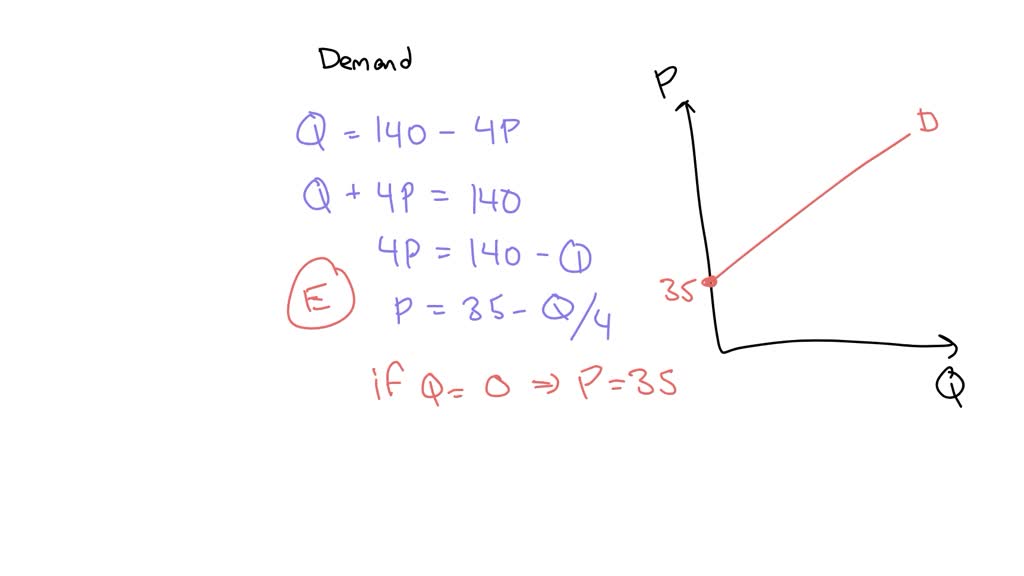 Demand
Q = 140 - 4P
Q + 4P = 140
4P = 140 - Q
E
P = 35 - Q/4
if Q = 0 ⇒ P = 35
P
D
35
Q